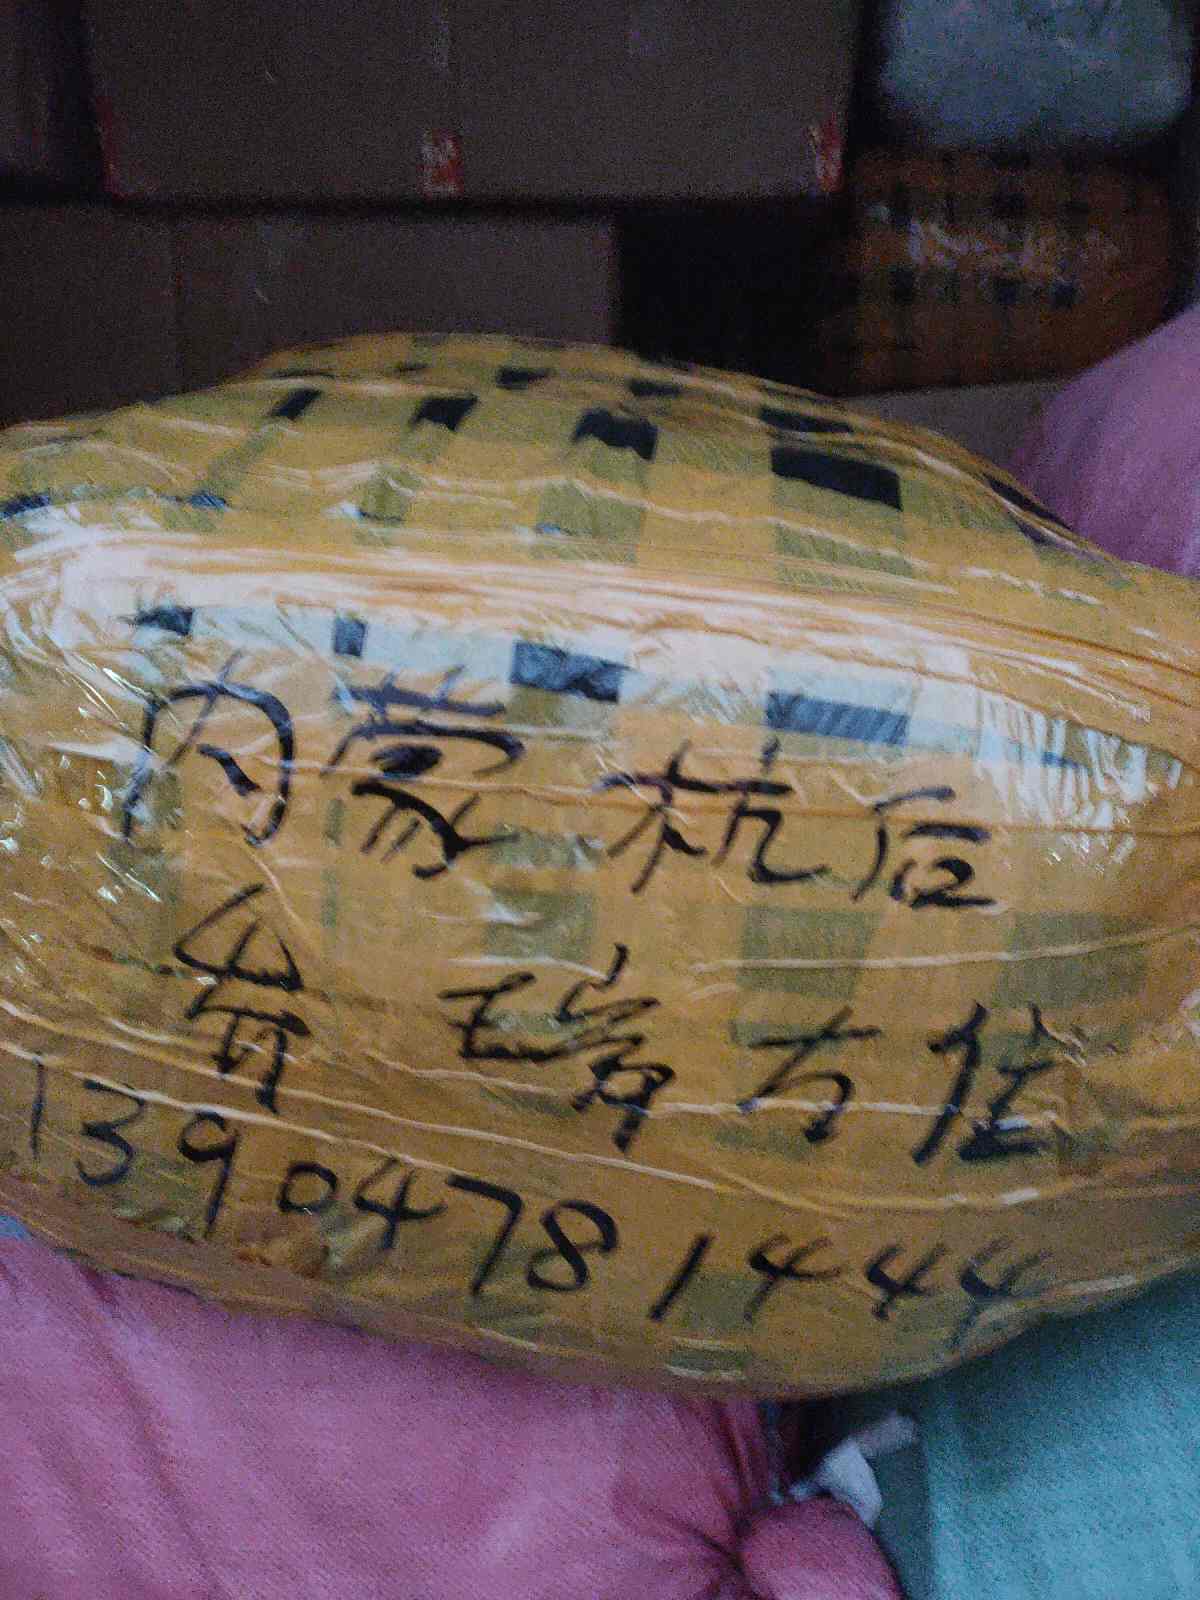 内蒙杭后
巷瑞方佳
13904781444